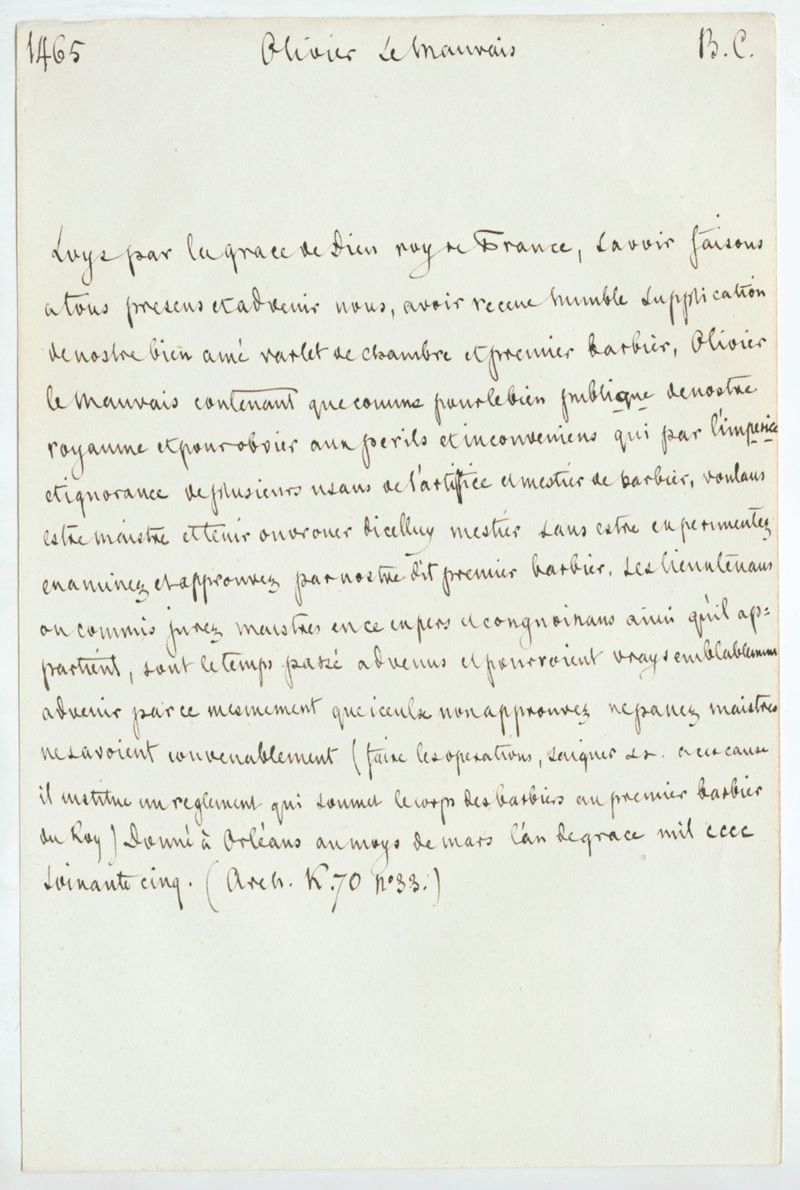 1465 Olivier Le Mauvais B.C.
Loys par la grace de Dieu roy de France, Savoir faisons
a tous presens et advenir nous, avoir receue humble supplication
de nostre bien amé varlet de chambre et premier barbier, Olivier
le Mauvais contenant que comme pour le bien publicque de nostre
royaume et pour obvier aux perils et inconveniens qui par l'imperice
et ignorance de plusieurs usans de l'artifice et mestier de barbier, voulans
estre maistre et tenir ouvrouer dicelluy mestier sans estre experimentez
examinez et approuvez par nostre dit premier barbier, ses lieutenans
ou commis jurez maistres en ce expers et congnoissans ainsi qu'il ap=
partient, sont le temps passé advenus et pourroient vraysemblablement
advenir parce mesmement que iceulx non approuvez ne passez maistres
ne savoient convenablement (faire les operations, saigner &&. a ces cause
il institue un reglement qui soumet le corps des barbiers au premier barbier
du Roy) Donné à Orléans au moys de mars l'an de grace mil cccc
soixante cinq. (Arch. K. 70 n° 33.)